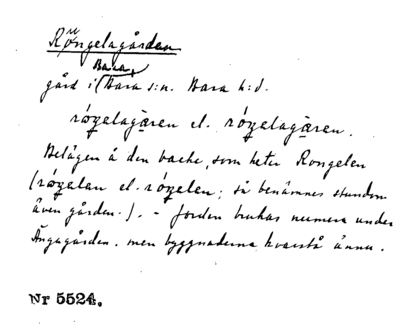 Röngelagården
Bara
gård i (Bara s:n. Bara h:d.
rózelagāren el. rózelagāren.
Belägen å den backe, som heter Rongelen
(rózelan el. rózelen; så benämnes stundom
även gården.). - Jorden brukas numera under
Ängagården. men byggnaderna kvarstå ännu.
Nr 5524.